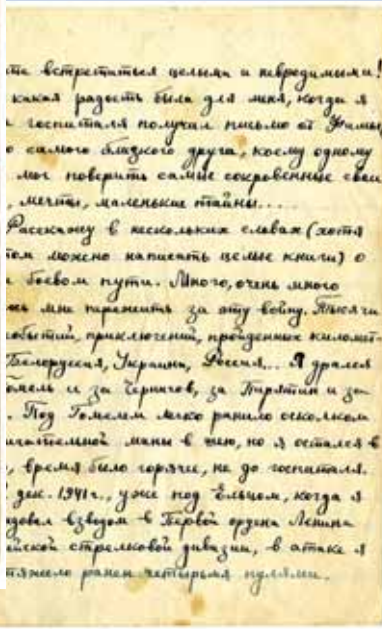 встретиться целыми и невредимыми!
какая радость была для меня, когда я
госпиталя получил письмо от Фимы,
о самого близкого друга, коему одному
мог поверить самые сокровенные свои
, мечты, маленькие тайны....
Расскажу в нескольких словах (хотя
том можно написать целые книги) о
боевом пути. Много, очень много
сь мне пережить за эту войну. Тысячи
событий, приключений, пройденных километ-
Белоруссия, Украина, Россия... Я дрался
омель и за Чернигов, за Пирятин и за
. Под Гомелем легко ранило осколком
мины в шею, но я остался в
, время было горячее, не до госпиталя.
дек. 1941 г., уже под Ельцом, когда я
взводом в Первой ордена Ленина
ейской стрелковой дивизии, в атаке я
тяжело ранен четырьмя пулями.